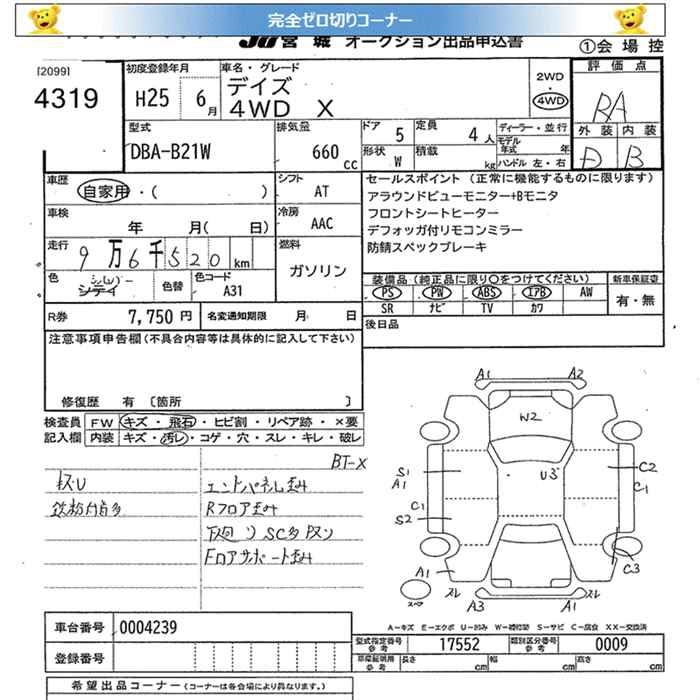 完全ゼロ切りコーナー
JU 宮城 オークション出品申込書
①会場控
[2099]
4319
初度登録年月
H25 6月
車名・グレード
デイズ
4WD X
2WD
4WD
評価点
RA
外装 内装
D B
型式
DBA-B21W
排気量
660 cc
ドア 5
形状 W
定員 4人
積載 kg
ディーラー・並行
モデル年式 年
ハンドル 左・右
車歴
自家用・( )
シフト
AT
車検
年 月( 日)
冷房
AAC
走行
9万6千520km
燃料
ガソリン
色
シティ
色替
色コード
A31
R券
7,750 円
名変通知期限 月 日
セールスポイント (正常に機能するものに限ります)
アラウンドビューモニター+Bモニタ
フロントシートヒーター
デフォッガ付リモコンミラー
防錆スペックブレーキ
装備品(純正品に限り○をつけてください)
PS PW ABS エアB AW
SR ナビ TV カワ
新車保証書
有・無
後日品
注意事項申告欄(不具合内容等は具体的に記入して下さい)
修復歴 有 [箇所 ]
検査員 FW キズ・飛石・ヒビ割・リペア跡・×要
記入欄 内装 キズ・汚レ・コゲ・穴・スレ・キレ・破レ
BT-X
キズU
エンドパネル歪み
Rフロア歪み
下廻り SC多
Fロアサポート歪み
A1 A2
W2
S1
A1
U3
C2
C1
C1
S2
A1
スレ
スレ
C3
スペア
A3
A1
A-キズ E-エクボ U-凹み W-補修跡 S-サビ C-腐食 XX-交換済
車台番号 0004239
登録番号
型式指定番号 参考 17552
類別区分番号 参考 0009
車庫証明用 参考 長さ cm 幅 cm 高さ cm
希望出品コーナー(コーナーは各会場により異なります。)